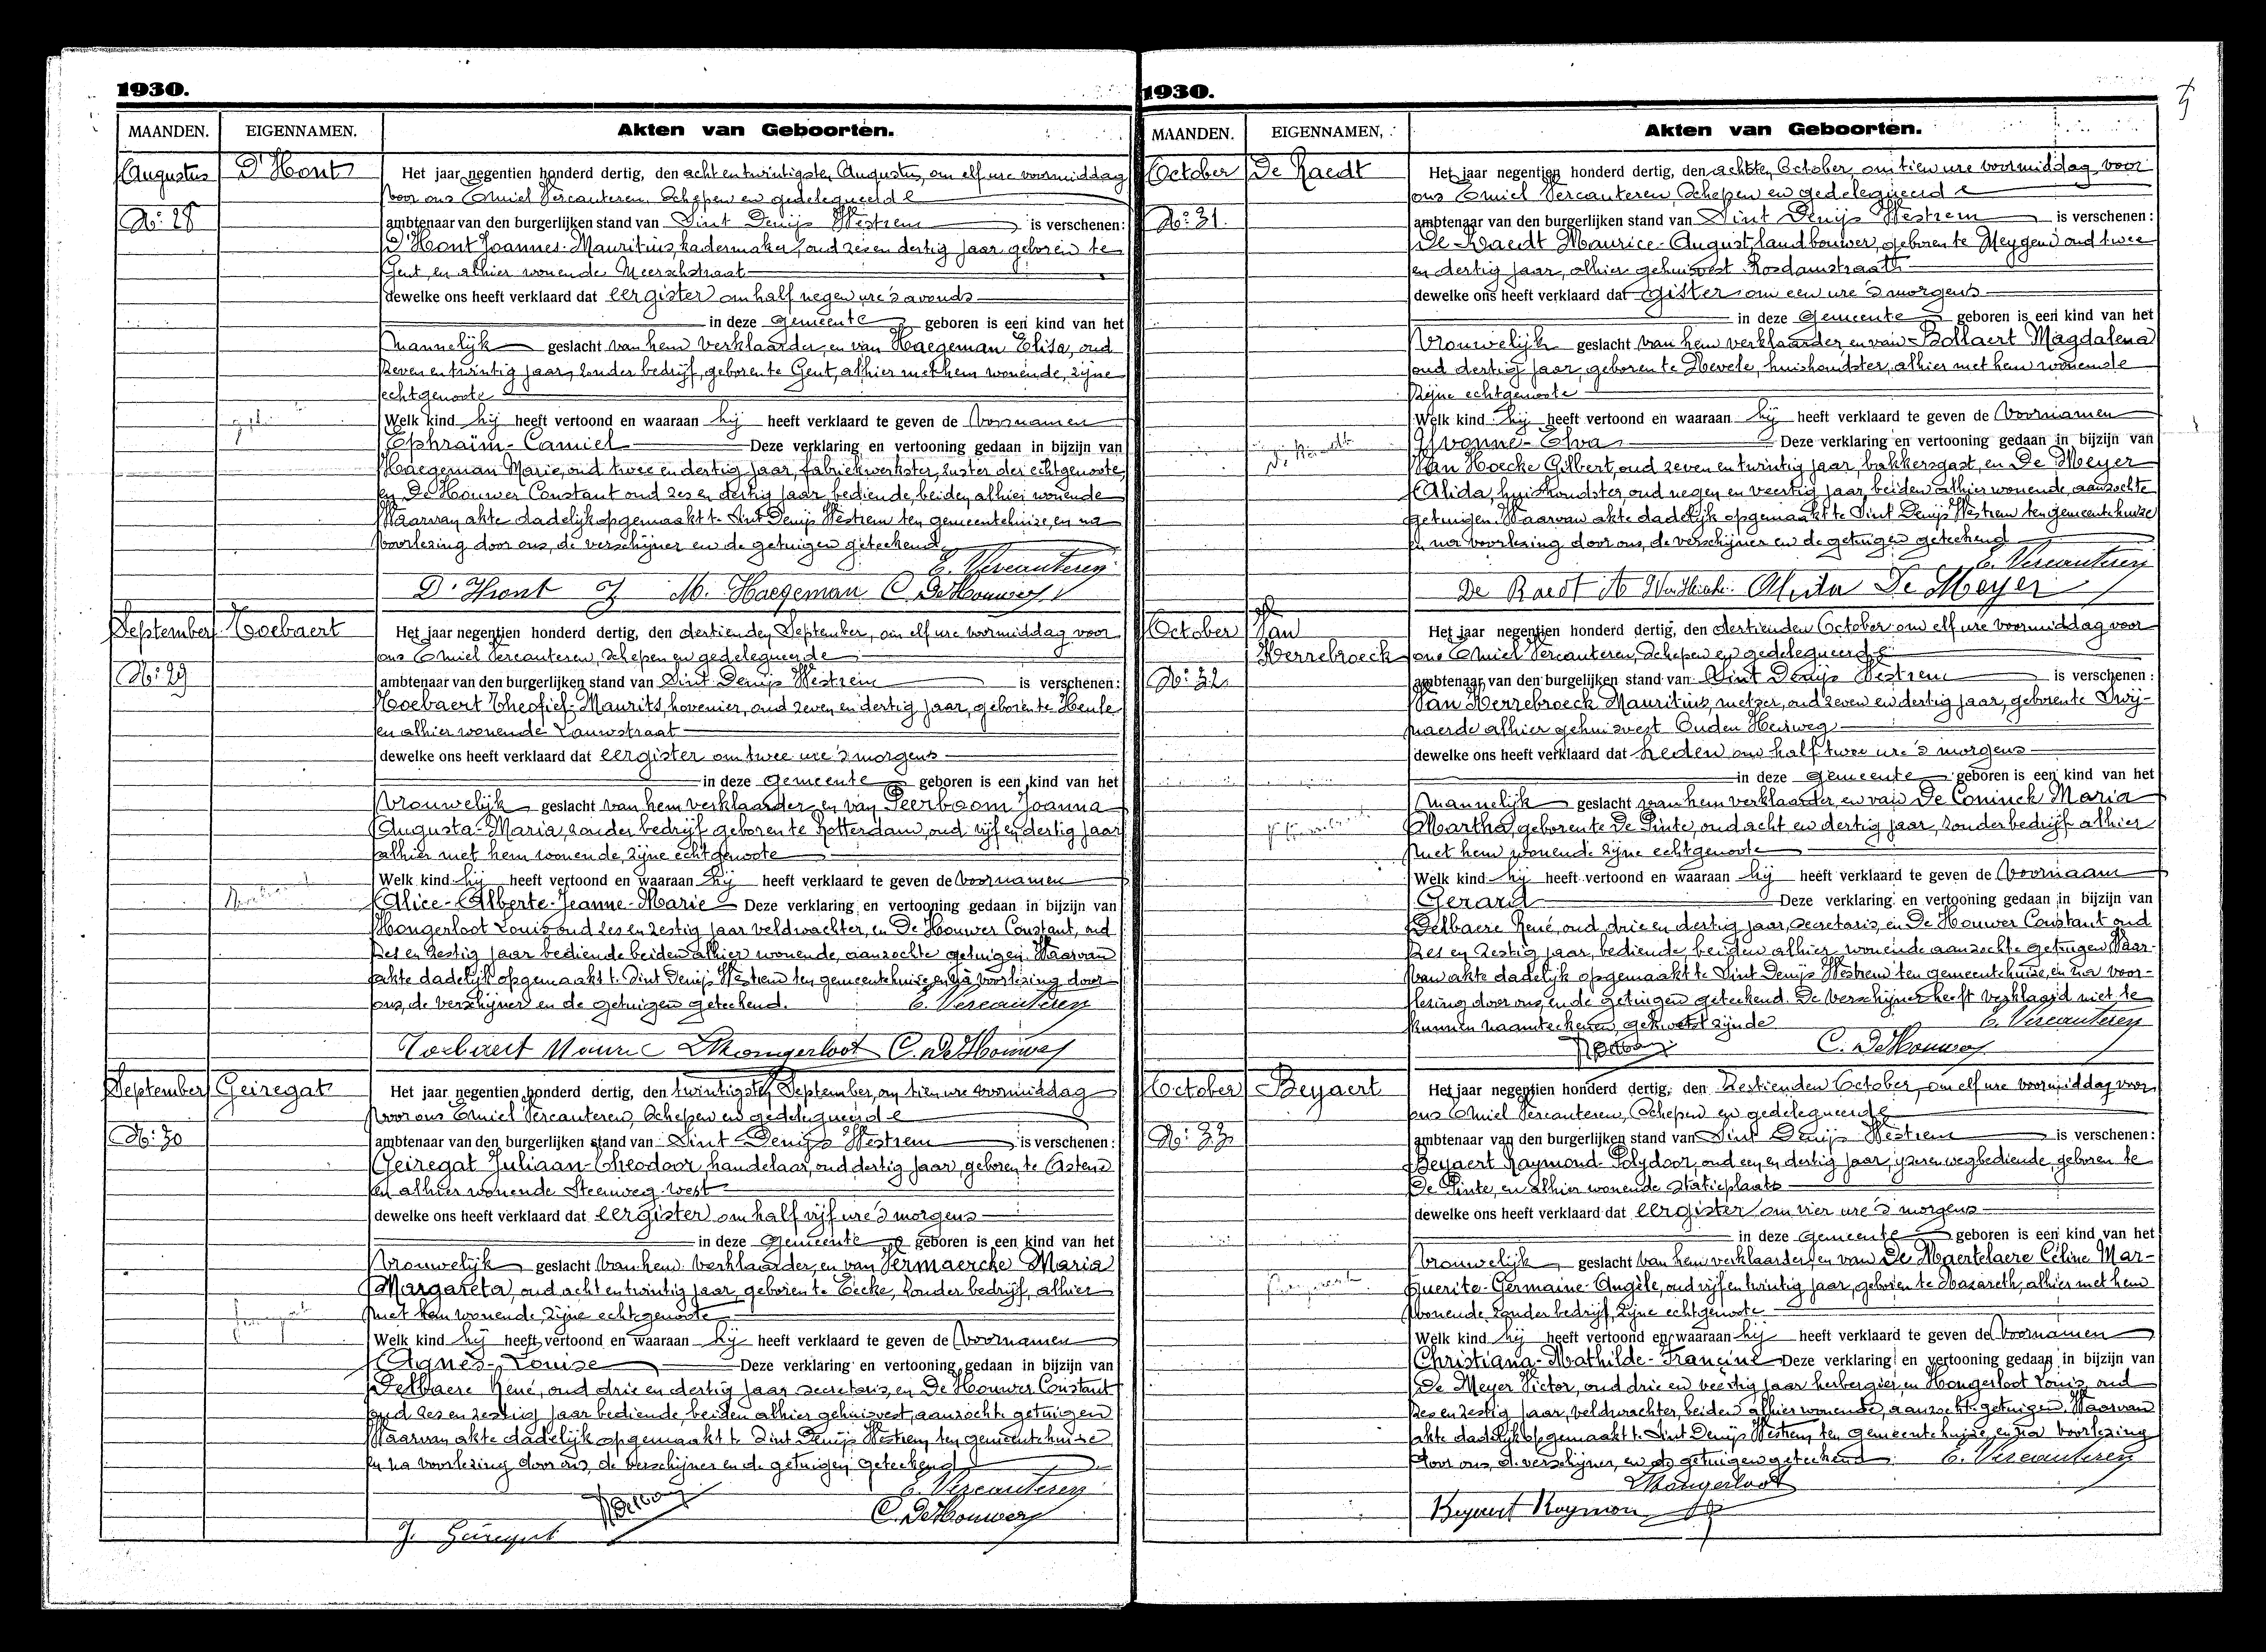 1930.
MAANDEN. EIGENNAMEN. Akten van Geboorten.
Augustus D'Hont Het jaar negentien honderd dertig, den acht en twintigsten Augustus, om elf ure voormiddag
voor ons Emiel Vercauteren, Schepen en gedelegueerde
No: 28 ambtenaar van den burgerlijken stand van Sint Denijs Westrem is verschenen:
D'Hont Joannes-Mauritius, kadermaker, oud zes en dertig jaar geboren te
Gent en alhier wonende Meerschstraat
dewelke ons heeft verklaard dat eergister om half negen ure 's avonds
in deze gemeente geboren is een kind van het
mannelijk geslacht van hem verklaarder, en van Haegeman Elisa, oud
zeven en twintig jaar, zonder bedrijf, geboren te Gent, alhier met hem wonende, zijne
echtgenoote
Welk kind hij heeft vertoond en waaraan hij heeft verklaard te geven de voornamen
Ephraïm-Camiel Deze verklaring en vertooning gedaan in bijzijn van
Haegeman Marie, oud twee en dertig jaar, fabriekwerkster, zuster der echtgenoote,
en De Houwer Constant oud zes en dertig jaar, bediende, beiden alhier wonende
Waarvan akte dadelijk opgemaakt te Sint Denijs Westrem ten gemeentehuize, en na
voorlezing door ons, de verschijner en de getuigen geteekend.
E. Vercauteren
D'Hont J M. Haegeman C. De Houwer
September Hoebaert Het jaar negentien honderd dertig, den dertienden September, om elf ure voormiddag voor
ons Emiel Vercauteren, Schepen en gedelegueerde
No: 29 ambtenaar van den burgerlijken stand van Sint Denijs Westrem is verschenen:
Hoebaert Theofiel-Maurits, hovenier, oud zeven en dertig jaar, geboren te Heule
en alhier wonende Lauwstraat
dewelke ons heeft verklaard dat eergister om twee ure 's morgens
in deze gemeente geboren is een kind van het
Vrouwelijk geslacht van hem verklaarder en van Peerboom Joanna
Augusta-Maria, zonder bedrijf geboren te Rotterdam, oud vijf en dertig jaar
alhier met hem wonende, zijne echtgenoote
Welk kind hij heeft vertoond en waaraan hij heeft verklaard te geven de voornamen
Alice-Alberte-Jeanne-Marie Deze verklaring en vertooning gedaan in bijzijn van
Hongerloot Louis oud zes en zestig jaar veldwachter, en De Houwer Constant, oud
zes en zestig jaar bediende beiden alhier wonende, aanzochte getuigen. Waarvan
akte dadelijk opgemaakt te Sint Denijs Westrem ten gemeentehuize, en na voorlezing door
ons, de verschijner en de getuigen geteekend. E. Vercauteren
Hoebaert Mauric LHongerloot C. De Houwer
September Geiregat Het jaar negentien honderd dertig, den twintigsten September, om tien ure voormiddag
voor ons Emiel Vercauteren, Schepen en gedelegueerde
No: 30 ambtenaar van den burgerlijken stand van Sint Denijs Westrem is verschenen:
Geiregat Juliaan-Theodoor, handelaar, oud dertig jaar, geboren te Astene
en alhier wonende Steenweg-west
dewelke ons heeft verklaard dat eergister om half vijf ure 's morgens
in deze gemeente geboren is een kind van het
Vrouwelijk geslacht van hem verklaarder, en van Vermaercke Maria
Margareta, oud acht en twintig jaar, geboren te Eecke, zonder bedrijf, alhier
met hem wonende, zijne echtgenoote
Welk kind hij heeft vertoond en waaraan hij heeft verklaard te geven de voornamen
Agnes-Louise Deze verklaring en vertooning gedaan in bijzijn van
Delbaere René, oud drie en dertig jaar secretaris, en De Houwer Constant
oud zes en zestig jaar bediende, beiden alhier gehuisvest, aanzochte getuigen
Waarvan akte dadelijk opgemaakt te Sint Denijs Westrem, ten gemeentehuize
en na voorlezing door ons, de verschijner en de getuigen geteekend
E. Vercauteren
C. De Houwer
J. Geiregat
1930.
MAANDEN. EIGENNAMEN. Akten van Geboorten.
October De Raedt Het jaar negentien honderd dertig, den achtsten October, om tien ure voormiddag voor
ons Emiel Vercauteren, Schepen en gedelegueerde
No: 31. ambtenaar van den burgerlijken stand van Sint Denijs Westrem is verschenen:
De Raedt Maurice-August, landbouwer, geboren te Meygem oud twee
en dertig jaar, alhier gehuisvest Rosdamstraat
dewelke ons heeft verklaard dat gister om een ure 's morgens
in deze gemeente geboren is een kind van het
Vrouwelijk geslacht van hem verklaarder en van Bollaert Magdalena
oud dertig jaar, geboren te Nevele, huishoudster, alhier met hem wonende
zijne echtgenoote
Welk kind hij heeft vertoond en waaraan hij heeft verklaard te geven de voornamen
Yvonne-Elva Deze verklaring en vertooning gedaan in bijzijn van
Van Hoecke Gilbert, oud zeven en twintig jaar, bakkersgast, en De Meyer
Alida, huishoudster, oud negen en veertig jaar, beiden alhier wonende, aanzochte
getuigen. Waarvan akte dadelijk opgemaakt te Sint Denijs Westrem ten gemeentehuize
en na voorlezing door ons, de verschijner en de getuigen geteekend
E. Vercauteren
De Raedt Alida De Meyer
October Van Het jaar negentien honderd dertig, den dertienden October om elf ure voormiddag voor
Herrebroeck ons Emiel Vercauteren, Schepen en gedelegueerde
No: 32 ambtenaar van den burgelijken stand van Sint Denijs Westrem is verschenen:
Van Herrebroeck Mauritius, metser, oud zeven en dertig jaar, geboren te Swij-
naerde alhier gehuisvest Ouden Heirweg
dewelke ons heeft verklaard dat heden om half twee ure 's morgens
in deze gemeente geboren is een kind van het
mannelijk geslacht van hem verklaarder, en van De Coninck Maria
Martha, geboren te De Pinte, oud acht en dertig jaar, zonder bedrijf alhier
met hem wonende zijne echtgenoote
Welk kind hij heeft vertoond en waaraan hij heeft verklaard te geven de voornaam
Gerard Deze verklaring en vertooning gedaan in bijzijn van
Delbaere René, oud drie en dertig jaar, secretaris, en De Houwer Constant oud
zes en zestig jaar, bediende, beiden alhier wonende aanzochte getuigen Waar-
van akte dadelijk opgemaakt te Sint Denijs Westrem ten gemeentehuize, en na voor-
lezing door ons en de getuigen geteekend. De verschijner heeft verklaard niet te
kunnen naamteekenen, gekwetst zijnde E. Vercauteren
C. De Houwer
October Beyaert Het jaar negentien honderd dertig, den zestienden October, om elf ure voormiddag voor
ons Emiel Vercauteren, Schepen en gedelegueerde
No: 33 ambtenaar van den burgerlijken stand van Sint Denijs Westrem is verschenen:
Beyaert Raymond-Polydoor, oud een en dertig jaar, ijzerenwegbediende, geboren te
De Pinte, en alhier wonende Statieplaats
dewelke ons heeft verklaard dat eergister om vier ure 's morgens
in deze gemeente geboren is een kind van het
Vrouwelijk geslacht van hem verklaarder, en van De Maertelaere Céline Mar-
guerite-Germaine-Angèle, oud vijf en twintig jaar, geboren te Nazareth, alhier met hem
wonende zonder bedrijf, zijne echtgenoote
Welk kind hij heeft vertoond en waaraan hij heeft verklaard te geven de voornamen
Christiana-Mathilde-Francine Deze verklaring en vertooning gedaan in bijzijn van
De Meyer Victor, oud drie en veertig jaar herbergier, en Hongerloot Louis, oud
zes en zestig jaar, veldwachter, beiden alhier wonende, aanzochte getuigen. Waarvan
akte dadelijk opgemaakt te Sint Denijs Westrem, ten gemeentehuize, en na voorlezing
door ons, de verschijner, en de getuigen geteekend E. Vercauteren
LHongerloot
Beyaert Raymon